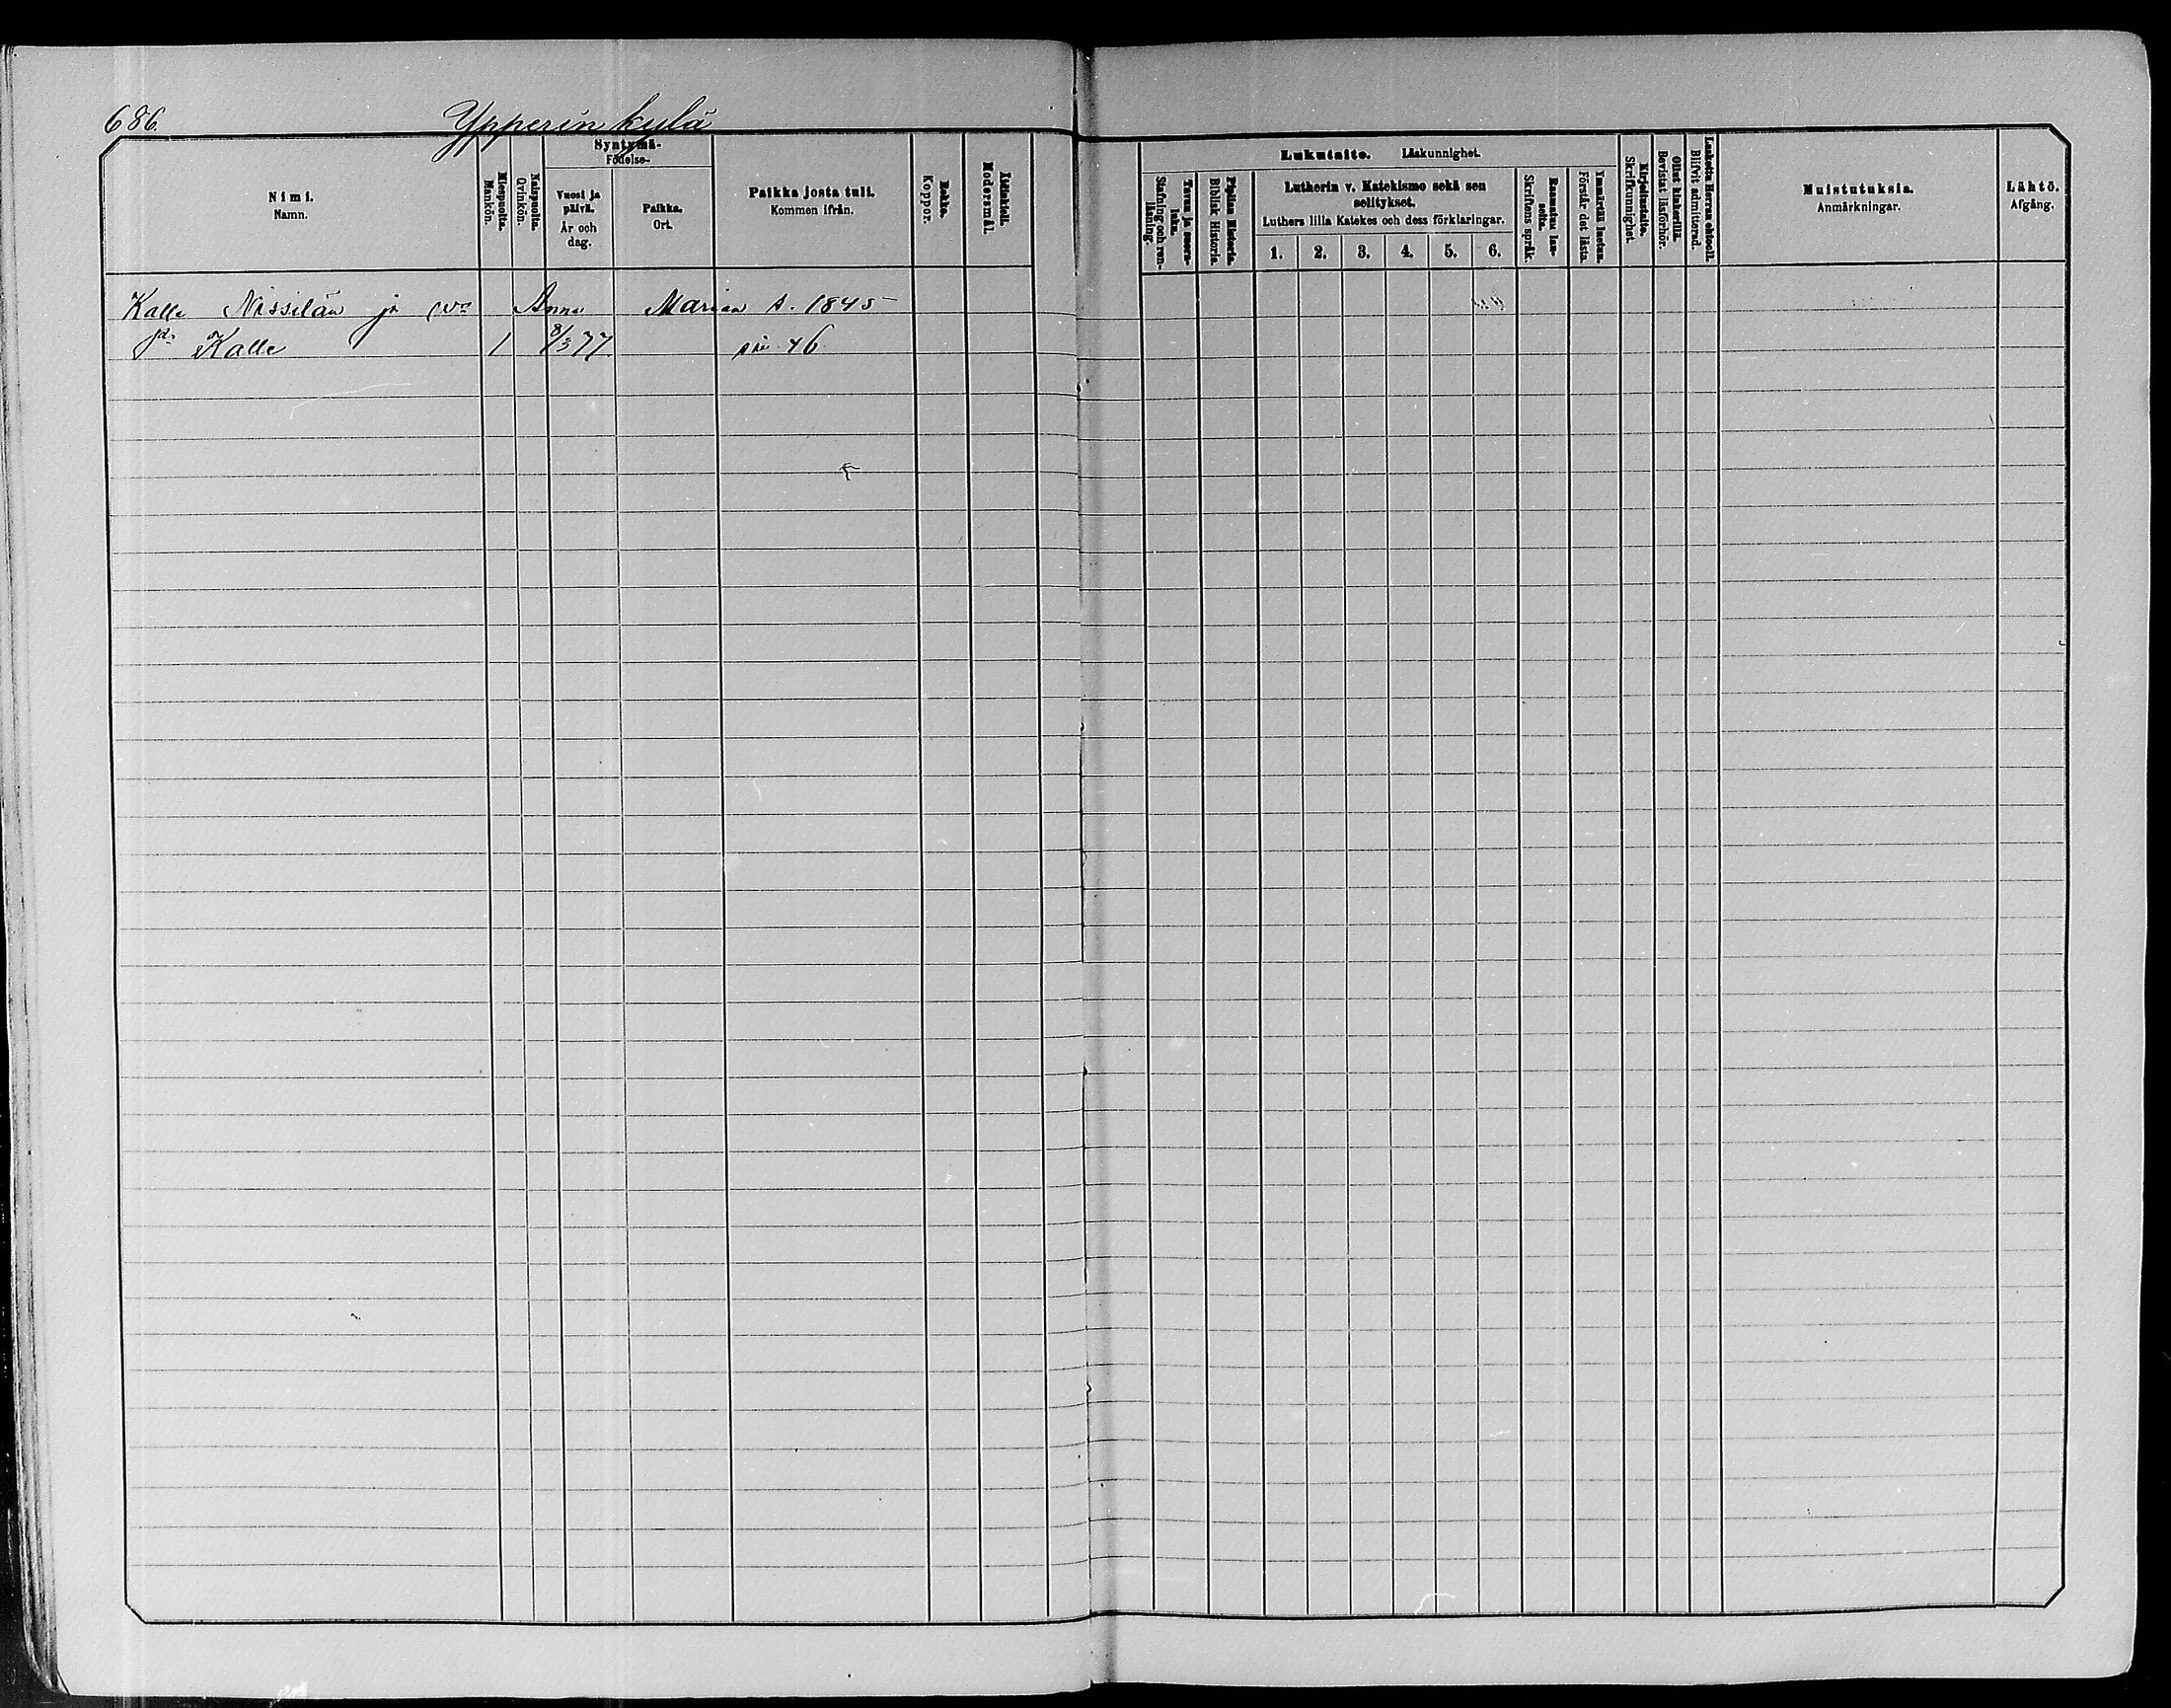 686.
Ypperin kylä
Nimi.
Namn.
Miespuolia.
Mankön.
Naispuolia.
Qvinkön.
Syntymä-
Födelse-
Vuosi ja
päivä.
År och
dag.
Paikka.
Ort.
Paikka josta tuli.
Kommen ifrån.
Rokko.
Koppor.
Äitinkieli.
Modersmål.
Lukutaito. Läskunnighet.
Tavuu ja suora-
luku.
Stafning och ren-
läsning.
Piplian Historia.
Biblisk Historia.
Lutherin v. Katekismo sekä sen
selitykset.
Luthers lilla Katekes och dess förklaringar.
1. 2. 3. 4. 5. 6.
Raamatun lau-
seita.
Skriftens språk.
Ymmärtää luetun.
Förstår det lästa.
Kirjoitustaito.
Skrifkunnighet.
Ollut kinkerillä.
Bevistat läsförhör.
Laskettu Herran ehtooll.
Blifvit admitterad.
Muistutuksia.
Anmärkningar.
Lähtö.
Afgång.
Kalle Nissilän ja Anna Marian s. 1845
Kalle 1 8/3 77